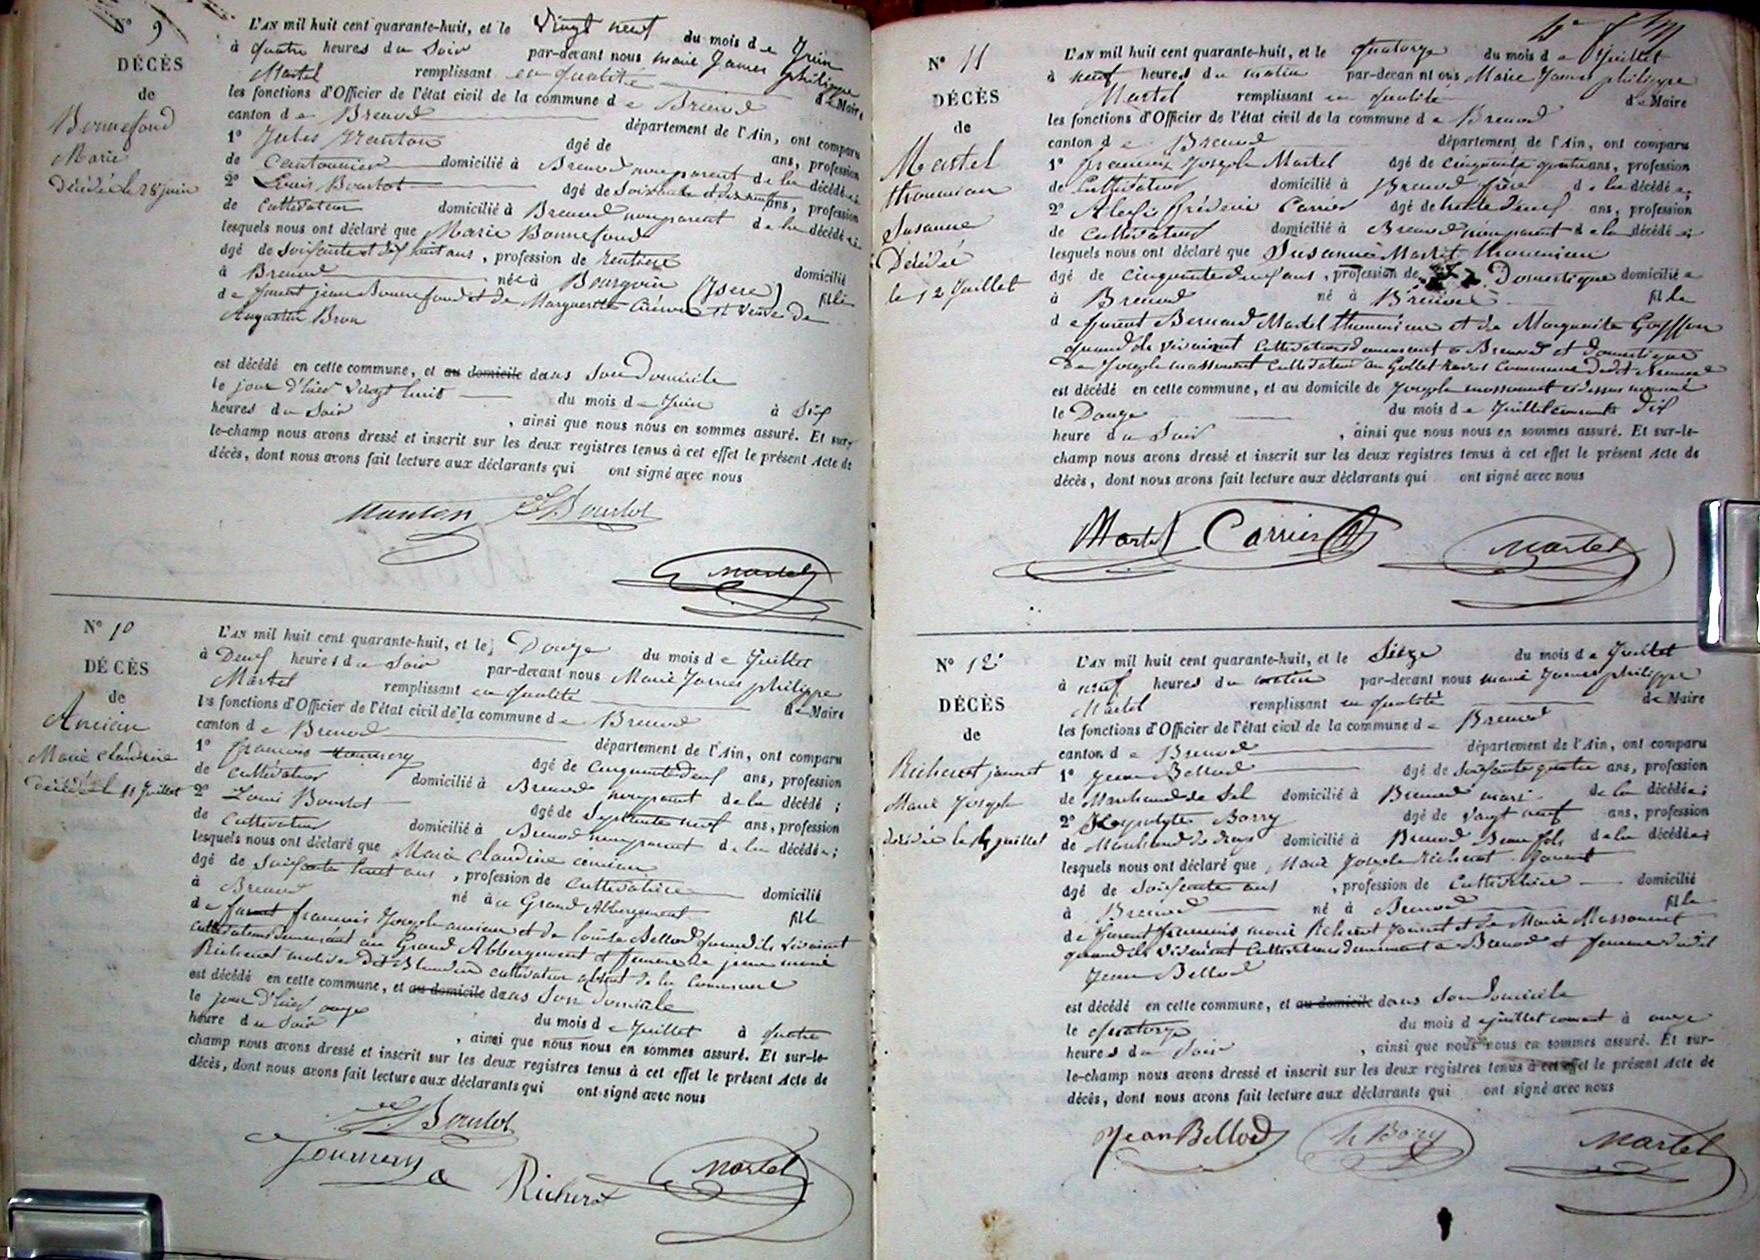 N° 9
DÉCÈS
de
Bonnefond
Marie
Décédée le 28 juin
L'AN mil huit cent quarante-huit, et le vingt neuf du mois de Juin
à quatre heures du Soir par-devant nous marie James philippe
Martel remplissant en qualité de Maire
les fonctions d'Officier de l'état civil de la commune de Brenod
canton de Brenod département de l'Ain, ont comparu
1° Jules Manton âgé de ans, profession
de Cantonnier domicilié à Brenod non parent de la décédée
2° Louis Bourlot âgé de Soixante et dix neuf ans, profession
de Cultivateur domicilié à Brenod non parent de la décédée
lesquels nous ont déclaré que Marie Bonnefond
âgé de Soixante et dix huit ans, profession de rentière domicilié
à Brenod née à Bourgoin (Isère) fille
de feu jean Bonnefond et de Marguerite et Veuve de
Augustin Bron
est décédé en cette commune, et au domicile dans Son Domicile
le jour d'hier vingt huit du mois de Juin à Six
heures du Soir, ainsi que nous nous en sommes assuré. Et sur-
le-champ nous avons dressé et inscrit sur les deux registres tenus à cet effet le présent Acte de
décès, dont nous avons fait lecture aux déclarants qui ont signé avec nous
Manton Bourlot
Martel
N° 10
DÉCÈS
de
Ancian
Marie Claudine
décédée le 11 Juillet
L'AN mil huit cent quarante-huit, et le Douze du mois de Juillet
à Deux heures du Soir par-devant nous Marie James philippe
Martel remplissant en qualité de Maire
les fonctions d'Officier de l'état civil de la commune de Brenod
canton de Brenod département de l'Ain, ont comparu
1° françois Tournery âgé de Cinquante deux ans, profession
de Cultivateur domicilié à Brenod non parent de la décédé;
2° Louis Bourlot âgé de Septante neuf ans, profession
de Cultivateur domicilié à Brenod non parent de la décédée;
lesquels nous ont déclaré que Marie Claudine ancian
âgé de Soixante huit ans, profession de Cultivatrice domicilié
à Brenod né à au Grand Abbergement fille
de françois Joseph ancian et de louise Bellod quand ils vivaient
cultivateurs demeurant au Grand Abbergement et femme de jean marie
Richerot dit Blondin cultivateur absent de la Commune
est décédé en cette commune, et au domicile dans Son Domicile
le jour d'hier onze du mois de Juillet à quatre
heure du Soir, ainsi que nous nous en sommes assuré. Et sur-le-
champ nous avons dressé et inscrit sur les deux registres tenus à cet effet le présent Acte de
décès, dont nous avons fait lecture aux déclarants qui ont signé avec nous
Bourlot
Tournery Richerot Martel
N° 11
DÉCÈS
de
Martel
thominian
Susanne
Décédée
le 12 Juillet
L'AN mil huit cent quarante-huit, et le quatorze du mois de Juillet
à neuf heures du matin par-devant nous Marie James philippe
Martel remplissant en qualité de Maire
les fonctions d'Officier de l'état civil de la commune de Brenod
canton de Brenod département de l'Ain, ont comparu
1° Joseph Martel âgé de cinquante quatre ans, profession
de Cultivateur domicilié à Brenod frère de la décédée;
2° Alexis frédéric Carrier âgé de trente deux ans, profession
de Cultivateur domicilié à Brenod non parent de la décédée
lesquels nous ont déclaré que Susanne Martel thominian
âgé de cinquante deux ans, profession de Domestique domiciliée
à Brenod né à Brenod fille
de Bernard Martel thominian et de Marguerite Goyffon
quand ils vivaient Cultivateurs demeurant à Brenod et domestique
de Joseph massonnet Cultivateur au Gollet commune dudit Brenod
est décédé en cette commune, et au domicile de Joseph massonnet ci dessus nommé
le Douze du mois de Juillet courant à dix
heure du Soir, ainsi que nous nous en sommes assuré. Et sur-le-
champ nous avons dressé et inscrit sur les deux registres tenus à cet effet le présent Acte de
décès, dont nous avons fait lecture aux déclarants qui ont signé avec nous
Martel Carrier Martel
N° 12
DÉCÈS
de
Richerot janret
Marie Joseph
décédée le 14 juillet
L'AN mil huit cent quarante-huit, et le Seize du mois de Juillet
à neuf heures du matin par-devant nous marie James philippe
Martel remplissant en qualité de Maire
les fonctions d'Officier de l'état civil de la commune de Brenod
canton de Brenod département de l'Ain, ont comparu
1° Jean Bellod âgé de Soixante quatre ans, profession
de Marchand de Sel domicilié à Brenod mari de la décédée;
2° Hypolyte Borry âgé de vingt neuf ans, profession
de Marchand de draps domicilié à Brenod Beau fils de la décédée;
lesquels nous ont déclaré que Marie Josephe Richerot Janret
âgé de Soixante ans, profession de Cultivatrice domicilié
à Brenod né à Brenod fille
de marie Richerot Janret et de Marie Massonnet
quand ils vivaient Cultivateurs demeurant à Brenod et femme dudit
Jean Bellod
est décédé en cette commune, et au domicile dans Son Domicile
le quatorze du mois de juillet courant à onze
heures du Soir, ainsi que nous nous en sommes assuré. Et sur-
le-champ nous avons dressé et inscrit sur les deux registres tenus à cet effet le présent Acte de
décès, dont nous avons fait lecture aux déclarants qui ont signé avec nous
Jean Bellod h Borry Martel